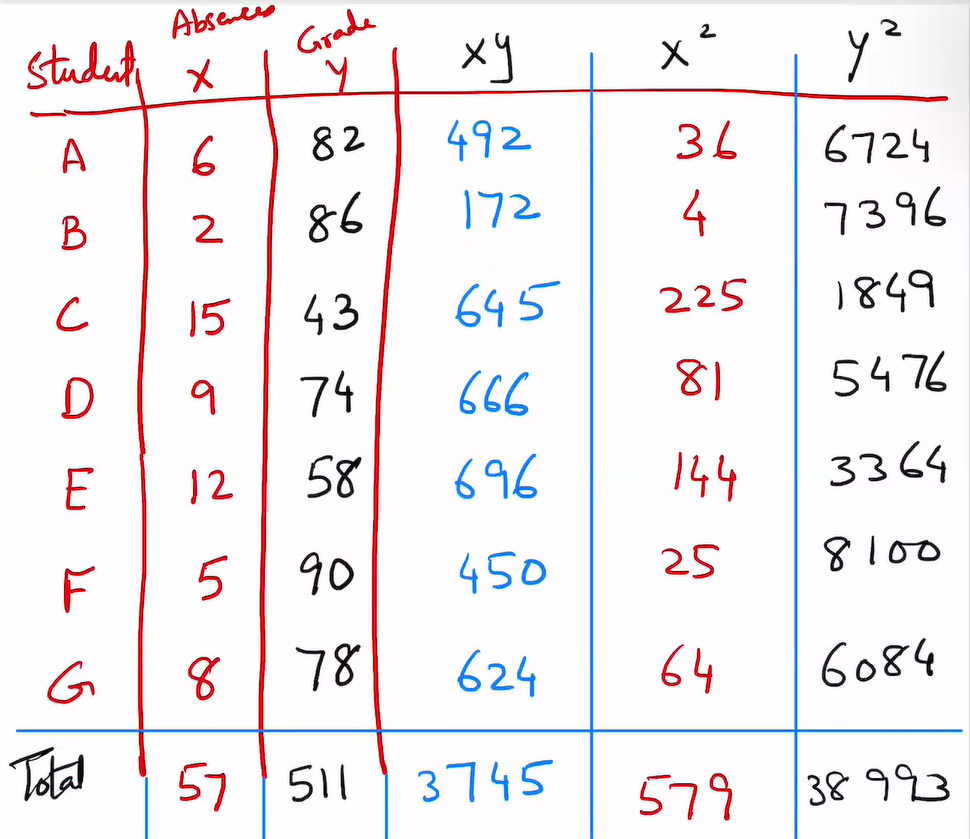 Student Absences x Grade y xy x² y²
A 6 82 492 36 6724
B 2 86 172 4 7396
C 15 43 645 225 1849
D 9 74 666 81 5476
E 12 58 696 144 3364
F 5 90 450 25 8100
G 8 78 624 64 6084
Total 57 511 3745 579 38993